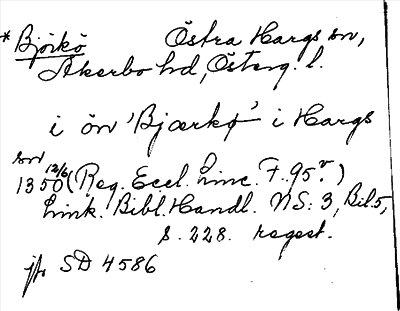 * Björkö Östra Hargs sn,
Åkerbo hd, Österg. l.
i ön 'Bjærkø' i Hargs
sn
1350 12/6 (Reg. Eccl. Linc. F. 95 v.)
Link. Bibl. Handl. NS: 3, Bil. 5,
s. 228. regest.
jfr SD 4586